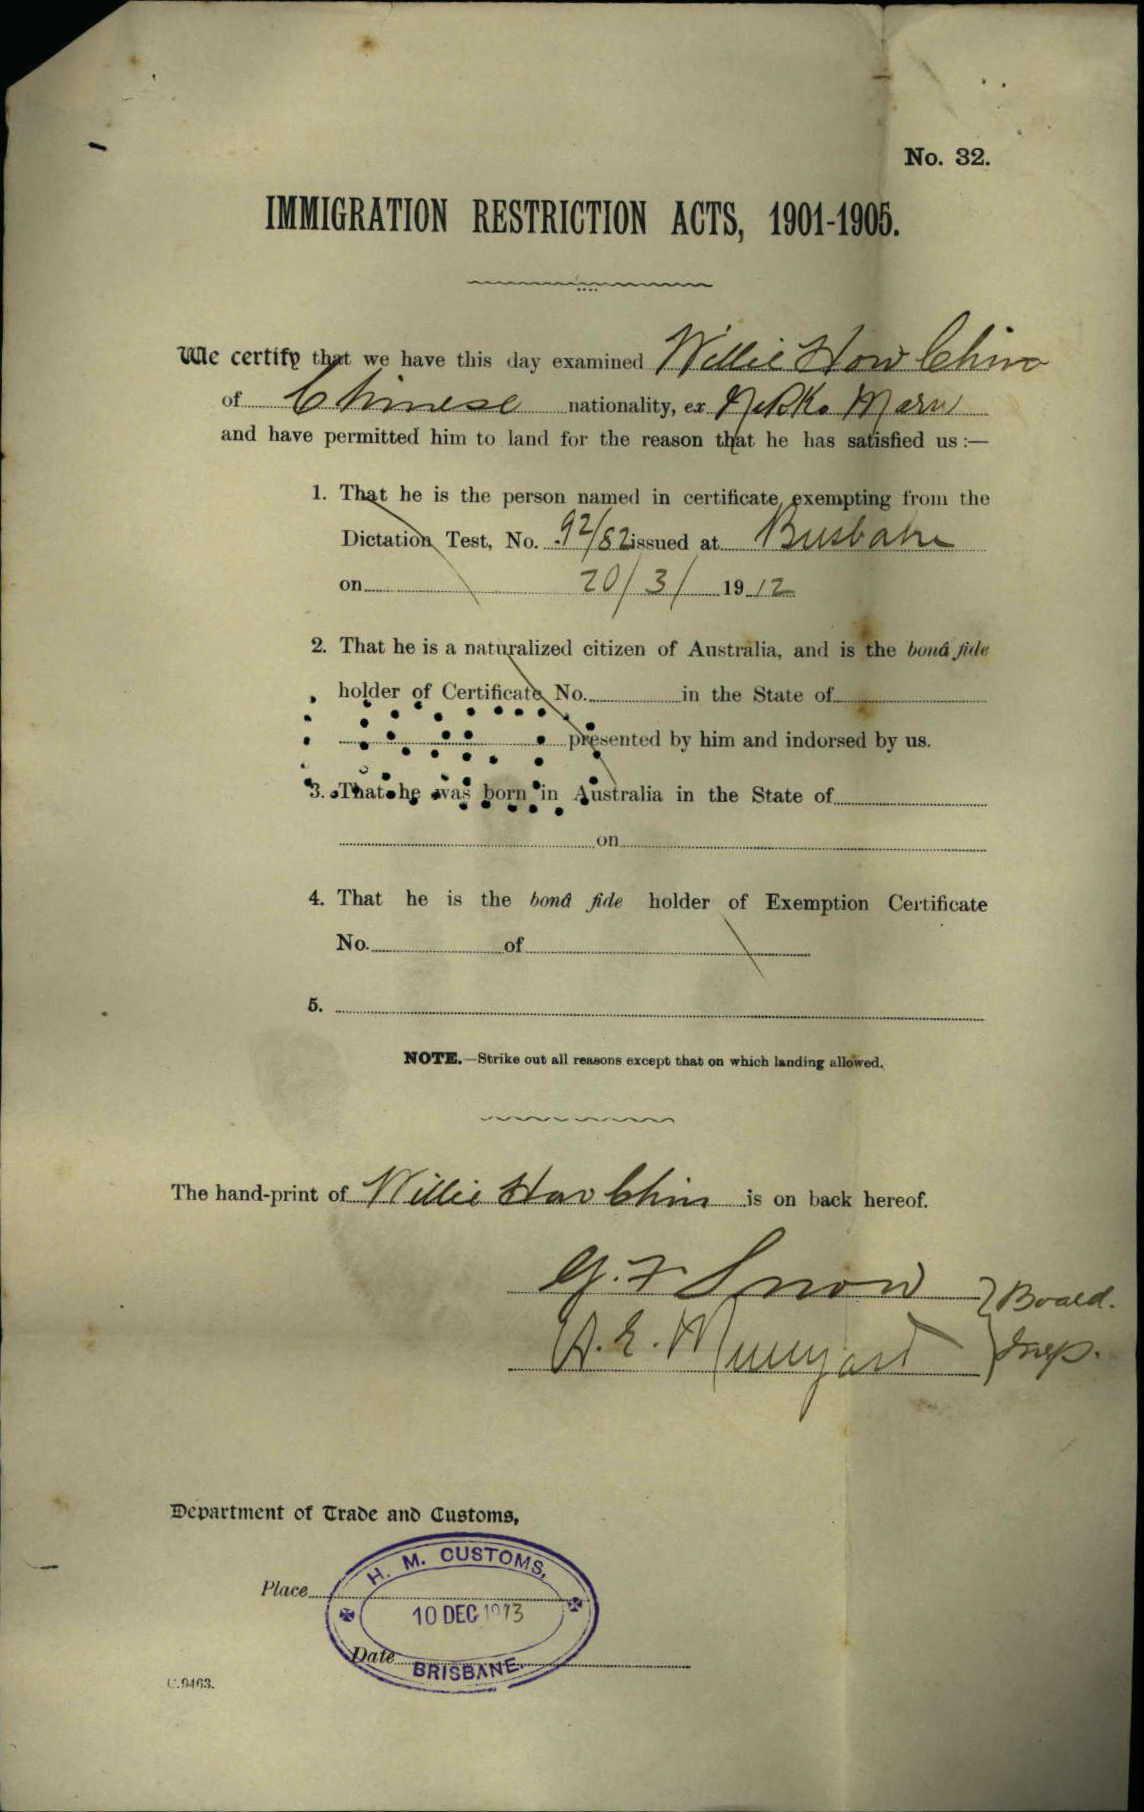 No. 32.
IMMIGRATION RESTRICTION ACTS, 1901-1905.
We certify that we have this day examined Willie How Chin
of Chinese nationality, ex Nikko Maru
and have permitted him to land for the reason that he has satisfied us :—
1. That he is the person named in certificate exempting from the
Dictation Test, No. 92/82 issued at Brisbane
on 20/3/ 1912
2. That he is a naturalized citizen of Australia, and is the bonâ fide
holder of Certificate No. in the State of
presented by him and indorsed by us.
3. That he was born in Australia in the State of
on
4. That he is the bonâ fide holder of Exemption Certificate
No. of
5.
NOTE.—Strike out all reasons except that on which landing allowed.
The hand-print of Willie How Chin is on back hereof.
G. F. Snow } Board.
A. E. } Insp.
Department of Trade and Customs,
H. M. CUSTOMS,
Place
10 DEC 1913
Date
BRISBANE.
C.9463.